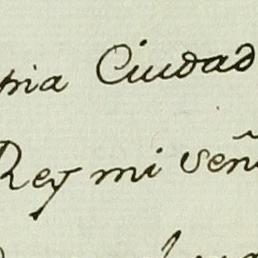 pia Ciudad
Rey mi señ